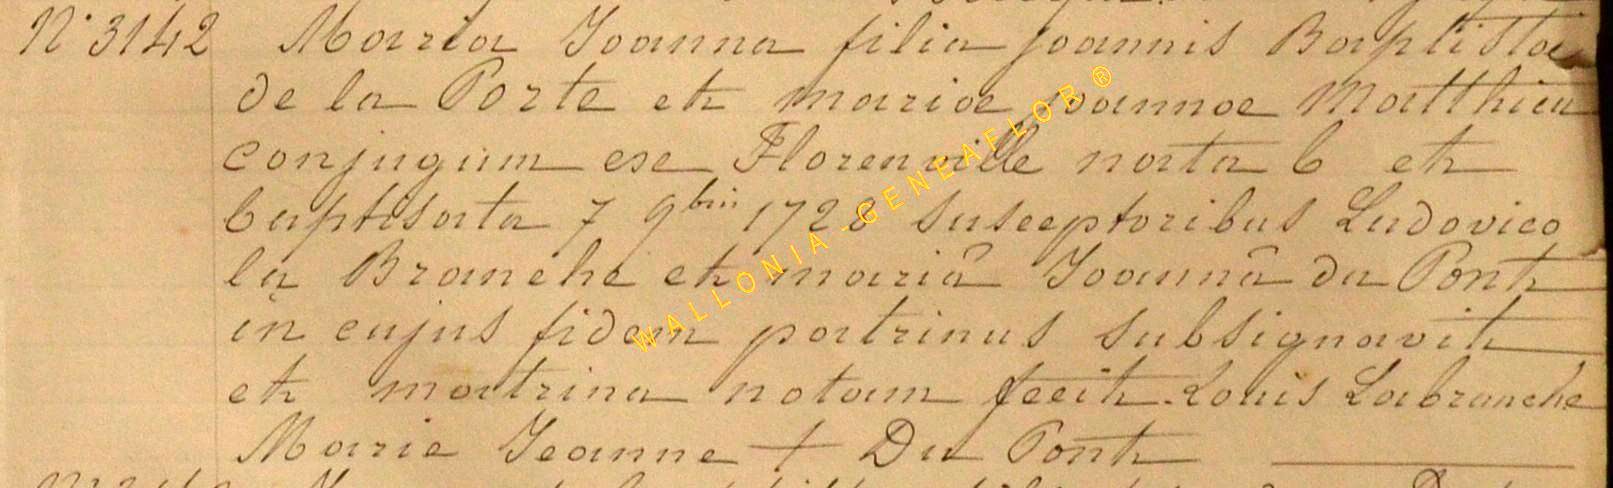 N° 3142 Maria Joanna filia Joannis Baptistae
de la Porte et mariae Joannae Matthieu
conjugum ese Florenville nata 6 et
baptisata 7 9bris 1728 susceptoribus Ludovico
la Branche et mariâ Joannâ du Pont
in cujus fidem patrinus subsignavit
et matrina notam fecit. Louis Labranche
Marie Jeanne + Du Pont
WALLONIA-GENEAFLOR®